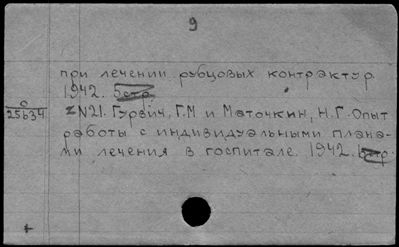 9
при лечении рубцовых контрактур.
1942. 5стр.
О
25634
№21. Гурвич, Г.М и Маточкин, Н.Г. Опыт
работы с индивидуальными плана-
ми лечения в госпитале. 1942. 5стр.
+